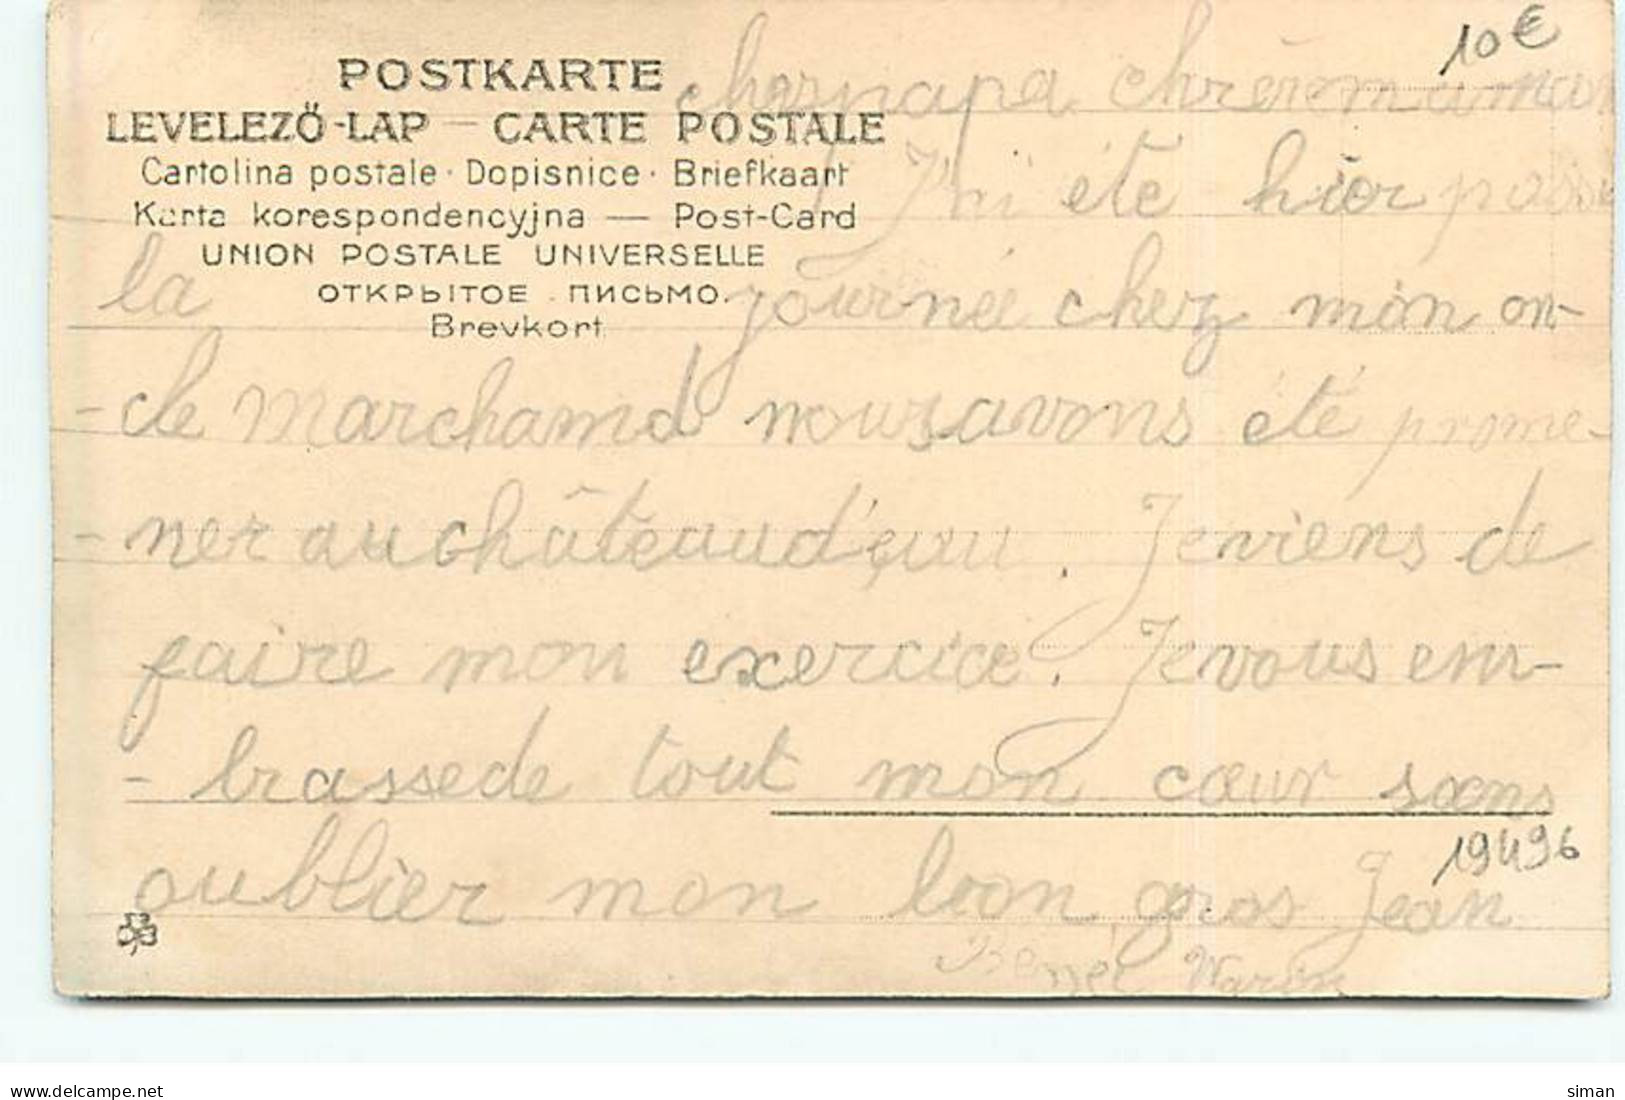 10 €
POSTKARTE
LEVELEZŐ-LAP — CARTE POSTALE
Cartolina postale · Dopisnice · Briefkaart
Karta korespondencyjna — Post-Card
UNION POSTALE UNIVERSELLE
ОТКРЫТОЕ ПИСЬМО.
Brevkort
cherpapa chrèremaman
J'ai été hier passe
la journée chez mon on-
-cle marchand nousavons été prome-
-ner auchâteaud'eau. Jeviens de
faire mon exercice. Jevous em-
-brassede tout mon cœur sans
19496
oublier mon bon gros Jean
delcampe.net
siman